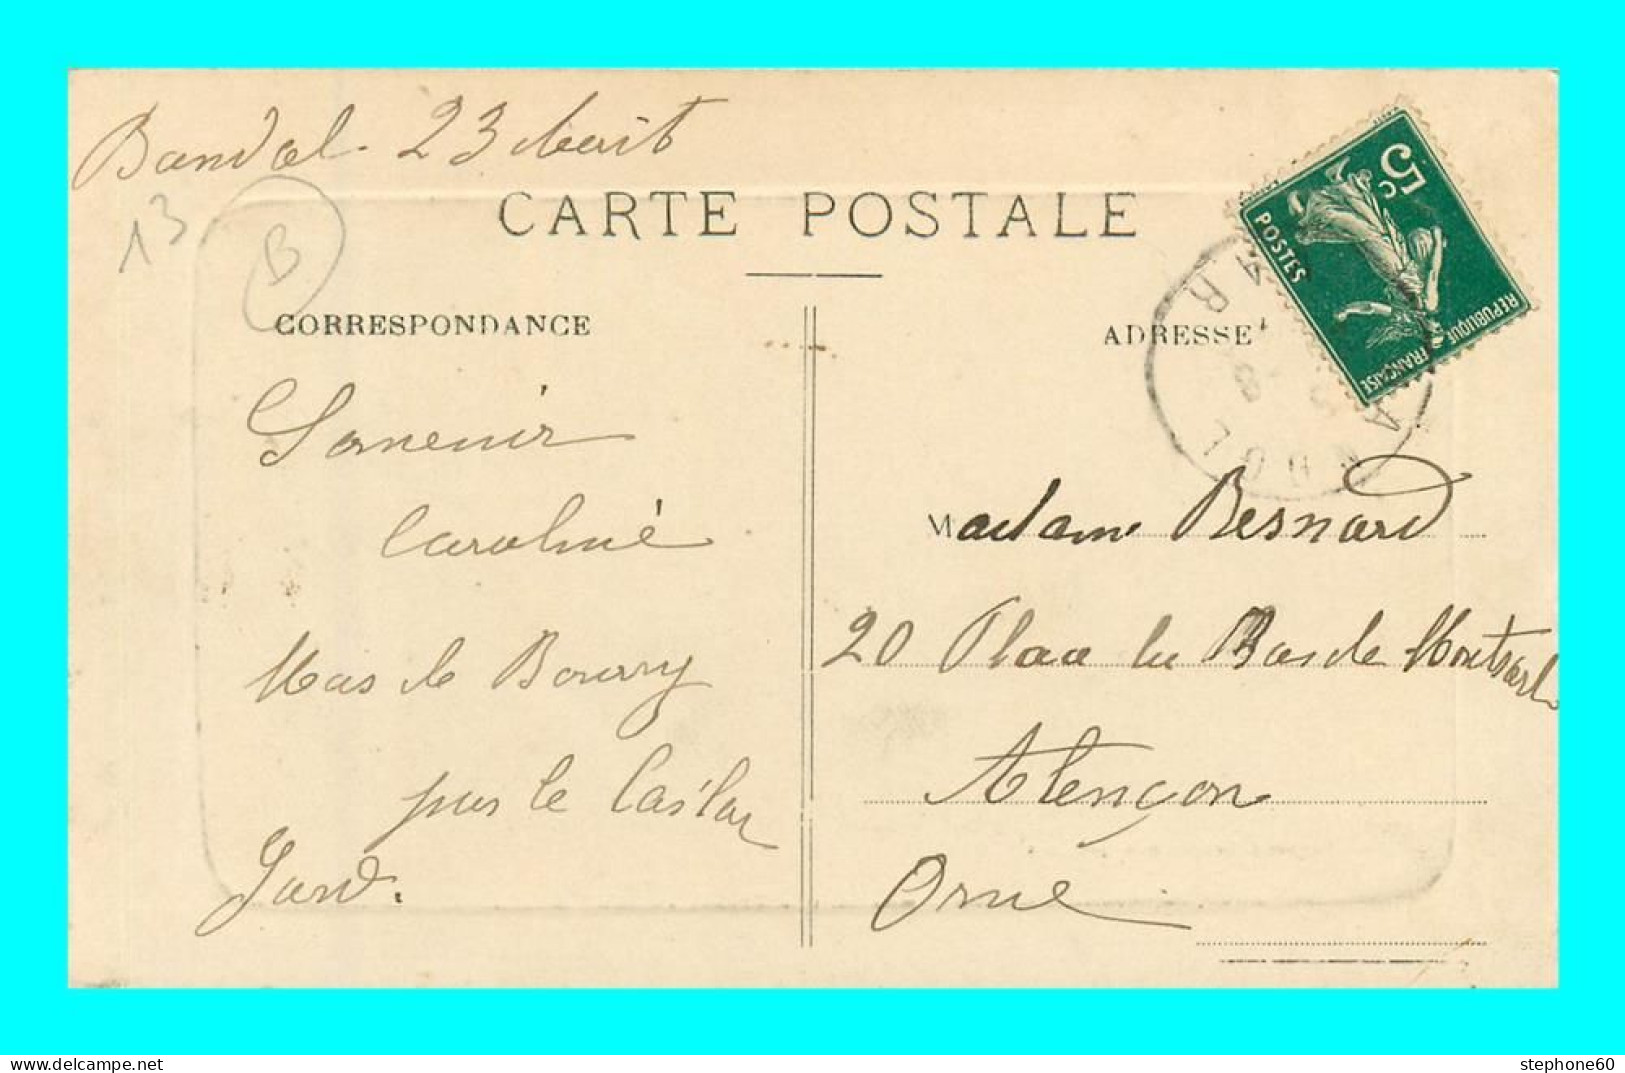 Bandol. 23 Août
13
B
CARTE POSTALE
CORRESPONDANCE
ADRESSE
5c
POSTES
REPUBLIQUE FRANÇAISE
BANDOL
VAR
Souvenir
Caroline
Mas de Bourry
par le Cailar
Gard.
Madame Besnard
20 Place du Bas de Montsort
Alençon
Orne
stephone60